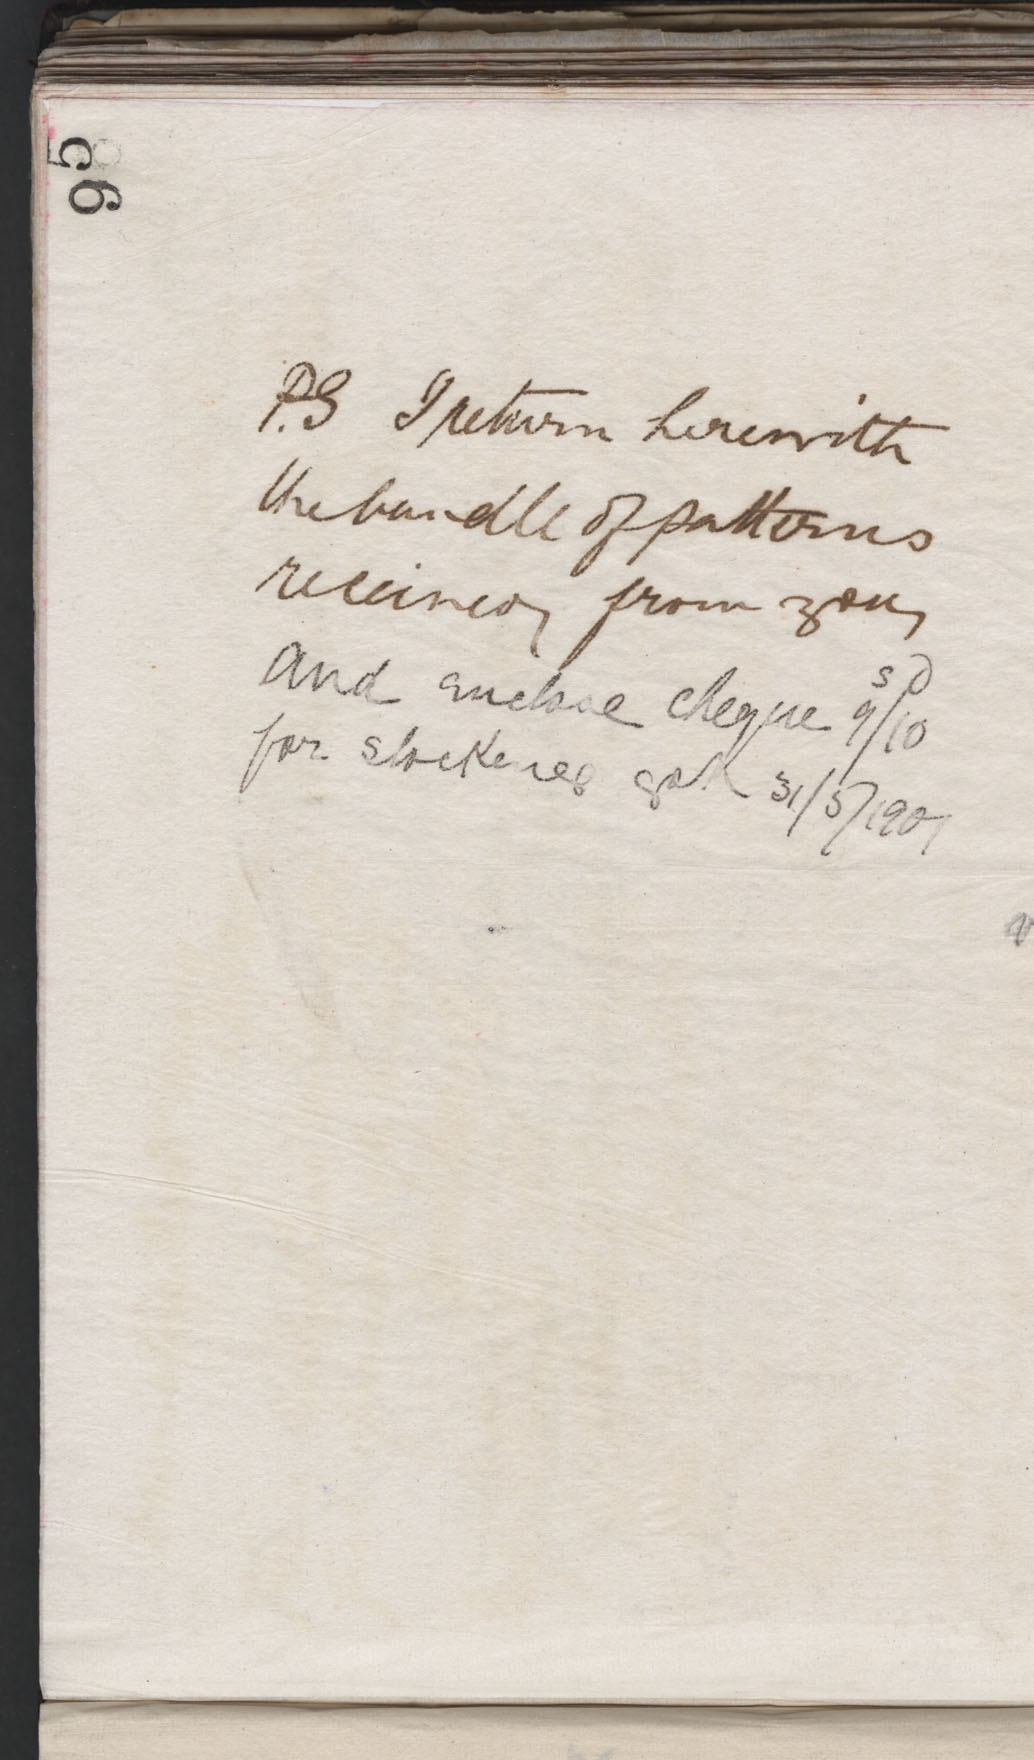 95
P.S I return herewith
the bundle of patterns
received from you,
and enclose cheque 9/10
s D
for stockings 31/5/1901